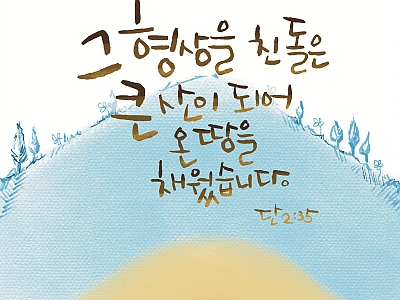 그 형상을 친 돌은
큰 산이 되어
온 땅을
채웠습니다.
단 2:35